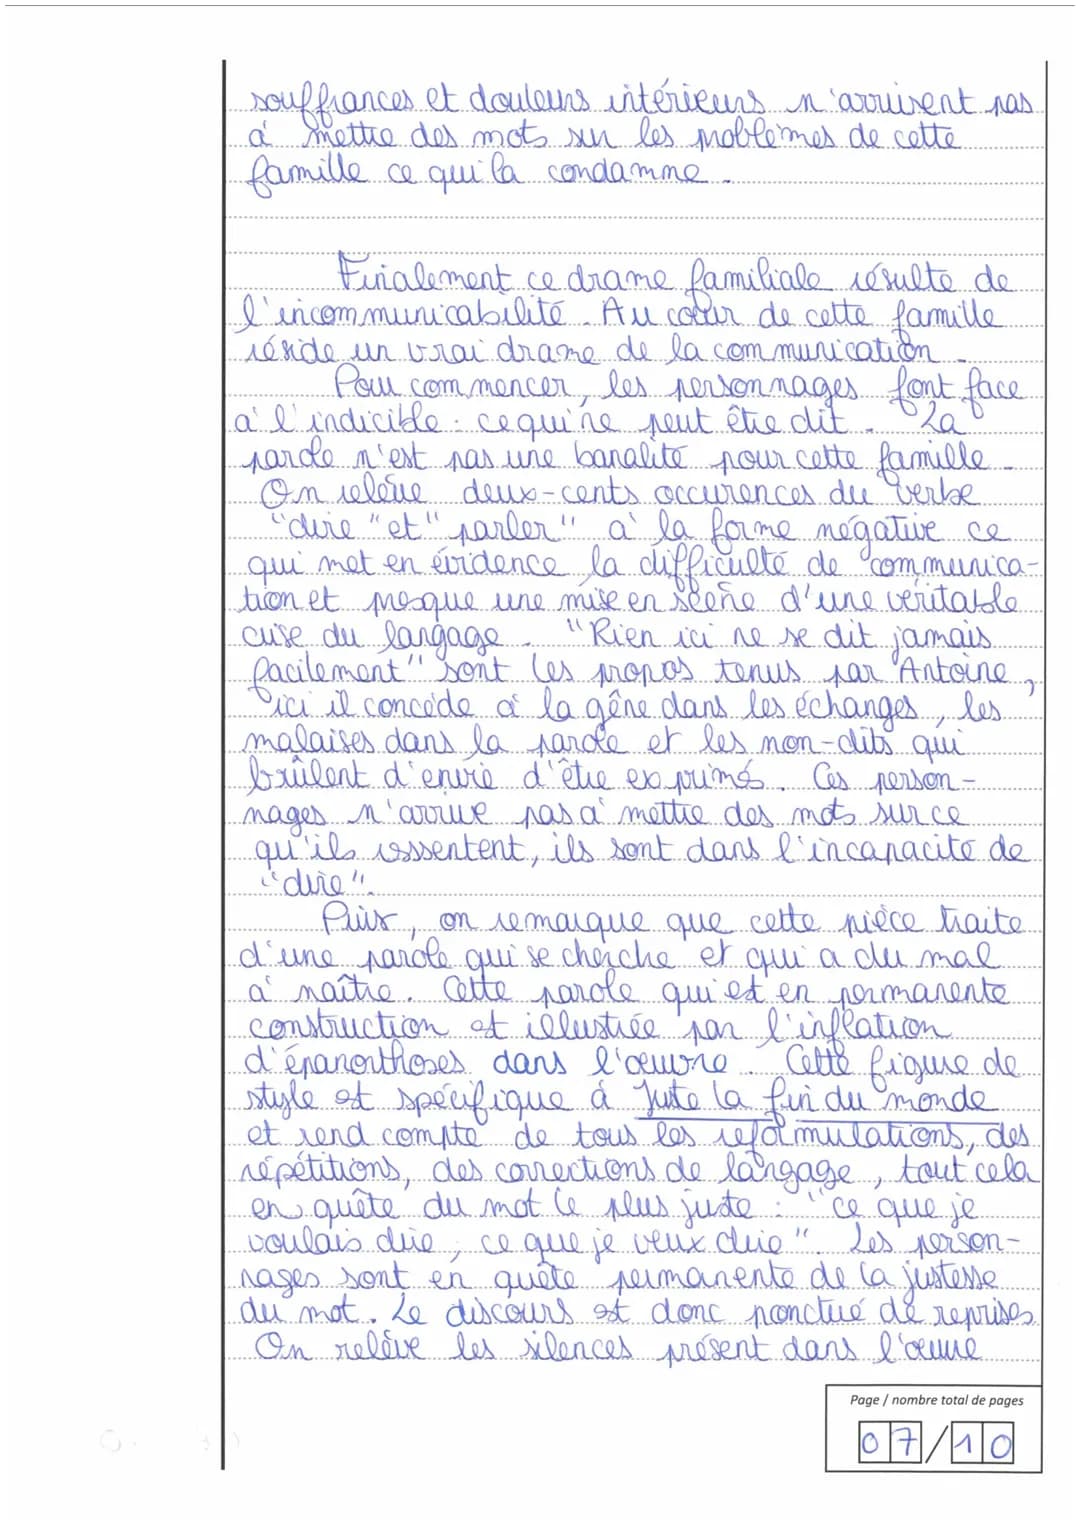 souffrances et douleurs intérieurs n'arrivent pas
à mettre des mots sur les problèmes de cette
famille ce qui la condamne.
Finalement ce drame familiale résulte de
l'incommunicabilité. Au cœur de cette famille
réside un vrai drame de la communication.
Pour commencer, les personnages font face
à l'indicible : ce qui ne peut être dit. La
parole n'est pas une banalité pour cette famille.
On relève deux-cents occurences du verbe
"dire" et "parler" à la forme négative ce
qui met en évidence la difficulté de communica-
tion et presque une mise en scène d'une véritable
crise du langage. "Rien ici ne se dit jamais
facilement" sont les propos tenus par Antoine,
ici il concède à la gêne dans les échanges, les
malaises dans la parole et les non-dits qui
brûlent d'envie d'être exprimés. Ces person-
nages n'arrive pas à mettre des mots sur ce
qu'ils ressentent, ils sont dans l'incapacité de
"dire".
Puis, on remarque que cette pièce traite
d'une parole qui se cherche et qui a du mal
à naître. Cette parole qui est en permanente
construction est illustrée par l'inflation
d'épanorthoses dans l'œuvre. Cette figure de
style est spécifique à Juste la fin du monde
et rend compte de tous les reformulations, des
répétitions, des corrections de langage, tout cela
en quête du mot le plus juste : "ce que je
voulais dire, ce que je veux dire". Les person-
nages sont en quête permanente de la justesse
du mot. Le discours est donc ponctué de reprises.
On relève les silences présent dans l'œuvre
Page / nombre total de pages
07/10